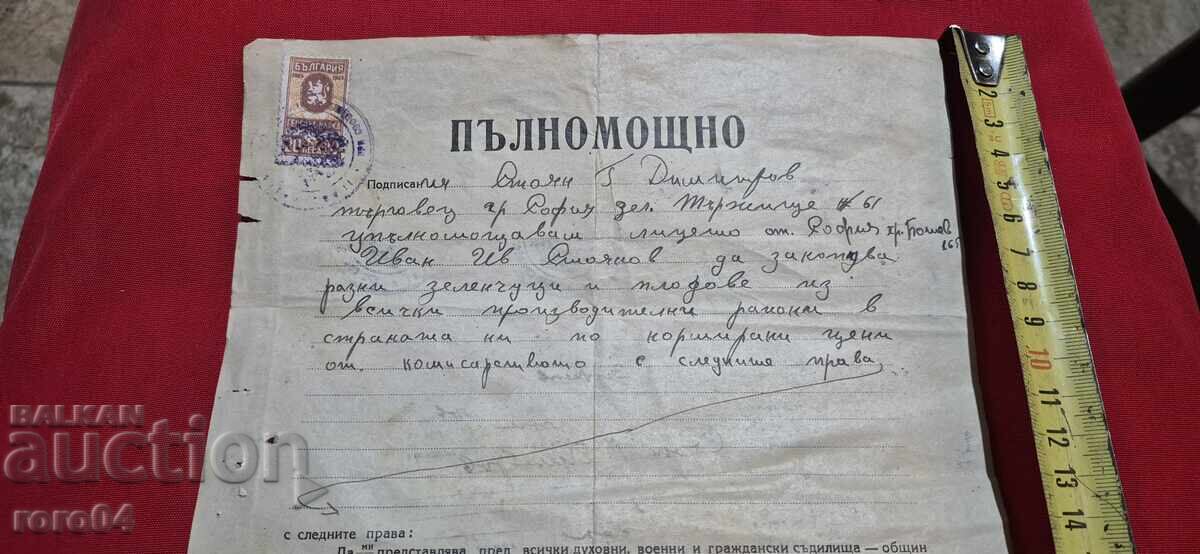 БЪЛГАРИЯ
ПЪЛНОМОЩНО
Подписания Стоян Г Димитров
търговец гр София дел. Тържище № 61
упълномощавам лицето от. София хр. Ботев
165
Иван Ив Стоянов да закупува
разни зеленчуци и плодове из
всички производителни райони в
страната ни по нормирани цени
от. комисарството с следните права
с следните права:
Да ми представлява пред всички духовни, военни и граждански съдилища — общин
2 3 4 5 6 7 8 9 10 11 12 13 14
BALKAN
auction
roro04